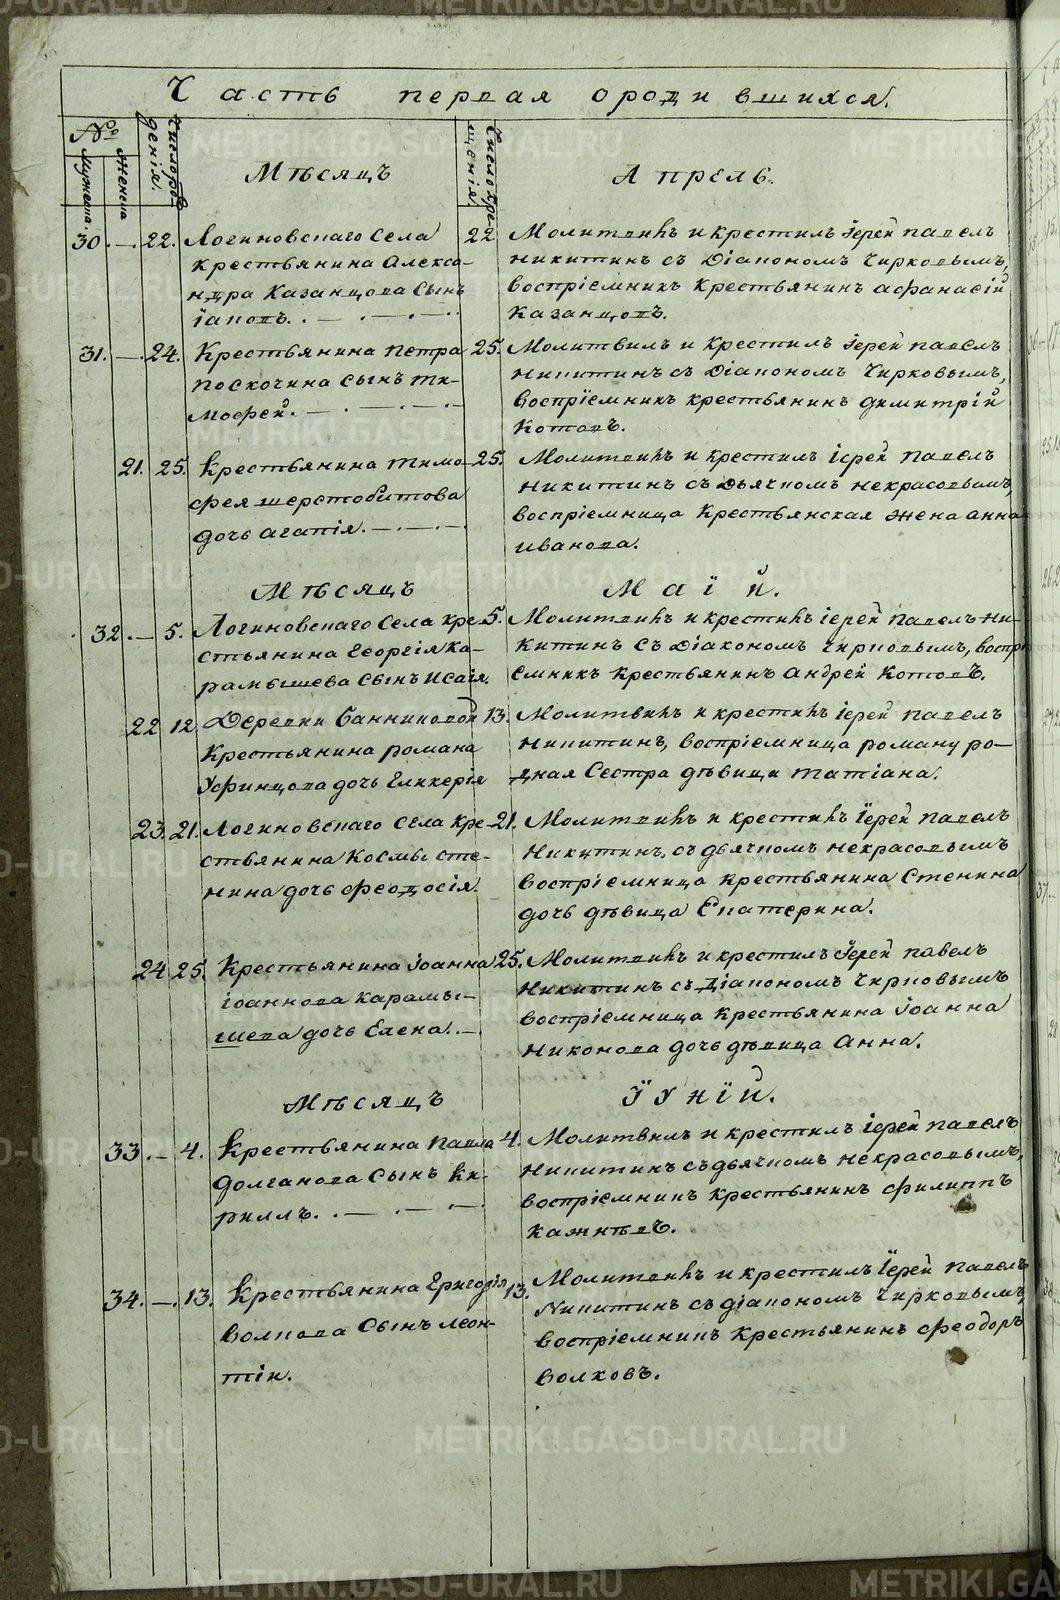 Часть первая о родившихся.
№
Мужеска. Женска
Число рождения.
Мѣсяцъ
Число крещения.
Апрель.
30. — 22. Логиновскаго Села
крестьянина Алекса-
ндра Казанцова Сынъ
іаковъ.
22 Молитвилъ и крестилъ іерей павелъ
никитинъ съ Діакономъ Чирковымъ,
воспріемникъ крестьянинъ афанасій
Казанцовъ.
31. — 24. Крестьянина петра
поскочина сынъ ти-
мофей.
25. Молитвилъ и крестилъ іерей павелъ
никитинъ съ Діакономъ Чирковымъ,
воспріемникъ крестьянинъ димитрій
Котовъ.
21. 25. крестьянина тимо-
фея шерстобитова
дочь агапія.
25. Молитвилъ и крестилъ іерей павелъ
никитинъ съ Дьячкомъ некрасовымъ,
воспріемница Крестьянская жена анна
иванова.
Мѣсяцъ
Маій.
32. — 5. Логиновскаго Села кре-
стьянина Георгія ка-
рамышева сынъ Исаія.
5. Молитвилъ и крестилъ іерей павелъ ни-
китинъ съ Діакономъ Чирковымъ, воспрі
емникъ крестьянинъ андрей Котовъ.
22 12 Деревни банниковой
Крестьянина романа
Уфинцова дочь Гликерія
13. Молитвилъ и крестилъ іерей павелъ
никитинъ, воспріемница роману ро-
дная Сестра дѣвица татіана.
23. 21. Логиновскаго села кре-
стьянина Космы сте-
нина дочь феодосія.
21. Молитвилъ и крестилъ іерей павелъ
никитинъ, съ дьячкомъ некрасовымъ
воспріемница крестьянина Стенина
дочь дѣвица Екатерина.
24 25. Крестьянина іоанна
іоаннова карамы-
шева дочь Елена.
25. Молитвилъ и крестилъ іерей павелъ
никитинъ съ діакономъ Чирковымъ
воспріемница крестьянина іоанна
никонова дочь дѣвица Анна.
Мѣсяцъ
Їунїй.
33. — 4. Крестьянина павла
долганова Сынъ ки-
риллъ.
4. Молитвилъ и крестилъ іерей павелъ
никитинъ съ дьячкомъ некрасовымъ,
воспріемникъ крестьянинъ филиппъ
34. — 13. крестьянина Григорія
волкова Сынъ леон-
тій.
13. Молитвилъ и крестилъ іерей павелъ
никитинъ съ діакономъ Чирковымъ,
воспріемникъ крестьянинъ феодоръ
волковъ.
METRIKI.GASO-URAL.RU